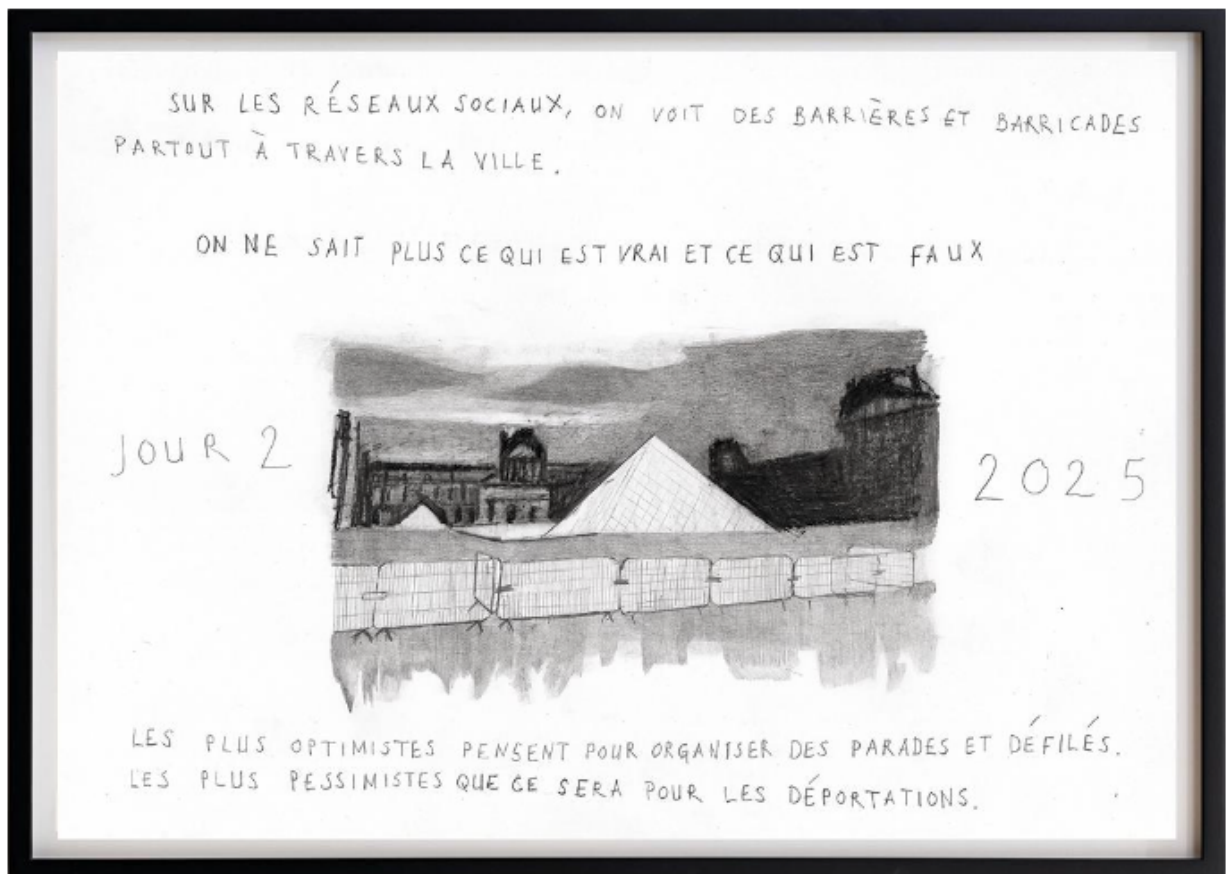 SUR LES RÉSEAUX SOCIAUX, ON VOIT DES BARRIÈRES ET BARRICADES
PARTOUT À TRAVERS LA VILLE.
ON NE SAIT PLUS CE QUI EST VRAI ET CE QUI EST FAUX
JOUR 2
2025
LES PLUS OPTIMISTES PENSENT POUR ORGANISER DES PARADES ET DÉFILÉS.
LES PLUS PESSIMISTES QUE CE SERA POUR LES DÉPORTATIONS.